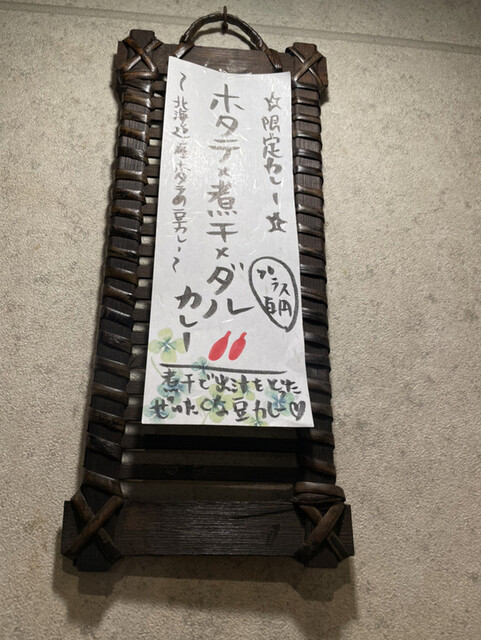 ☆限定カレー☆
ホタテ×煮干×ダル
カレー
〜北海道産ホタテの豆カレー〜
プラス
百円
煮干で出汁をとった
ぜいたくな豆カレー♡